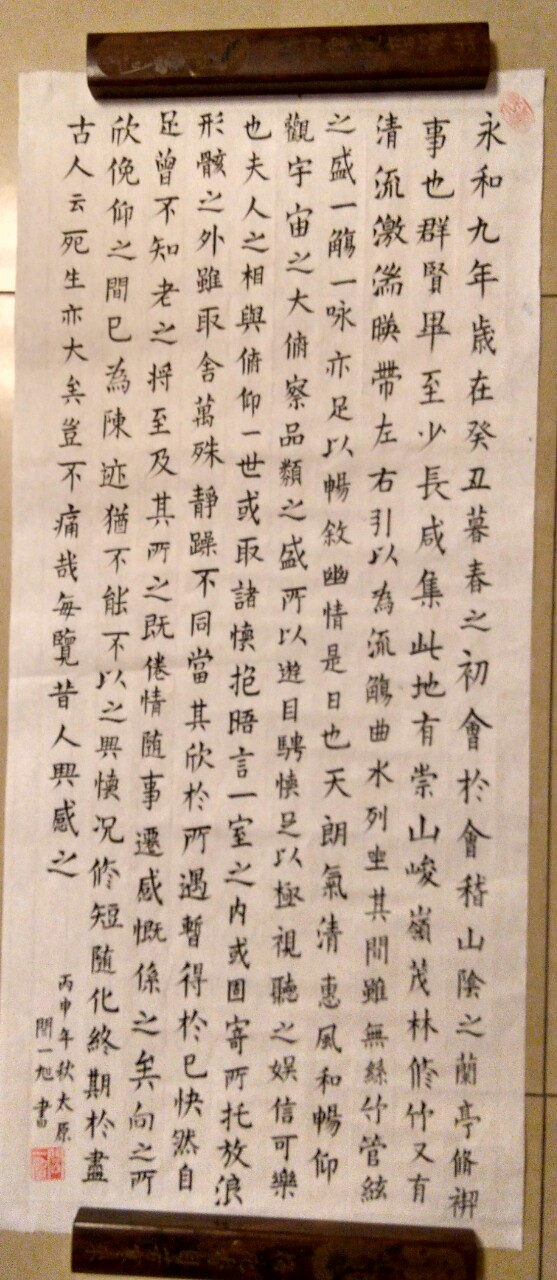 永和九年歲在癸丑暮春之初會於會稽山陰之蘭亭脩禊
事也群賢畢至少長咸集此地有崇山峻嶺茂林修竹又有
清流激湍暎帶左右引以為流觴曲水列坐其間雖無絲竹管絃
之盛一觴一咏亦足以暢敘幽情是日也天朗氣清惠風和暢仰
觀宇宙之大俯察品類之盛所以遊目騁懷足以極視聽之娛信可樂
也夫人之相與俯仰一世或取諸懷抱晤言一室之内或因寄所托放浪
形骸之外雖取舍萬殊靜躁不同當其欣於所遇暫得於己快然自
足曾不知老之將至及其所之既倦情随事遷感慨係之矣向之所
欣俛仰之間已為陳迹猶不能不以之興懷况修短随化終期於盡
古人云死生亦大矣豈不痛哉每覽昔人興感之
丙申年秋太原
一旭書